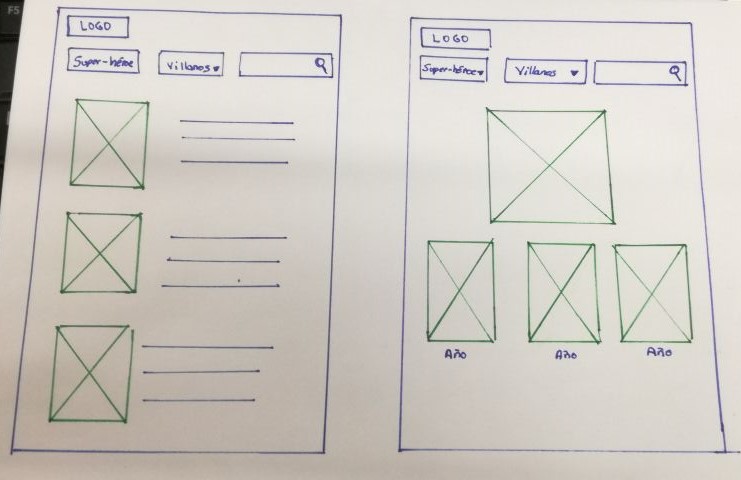 F5
LOGO
Super-héroe
Villanos
LOGO
Super-héroe
Villanos
Año
Año
Año